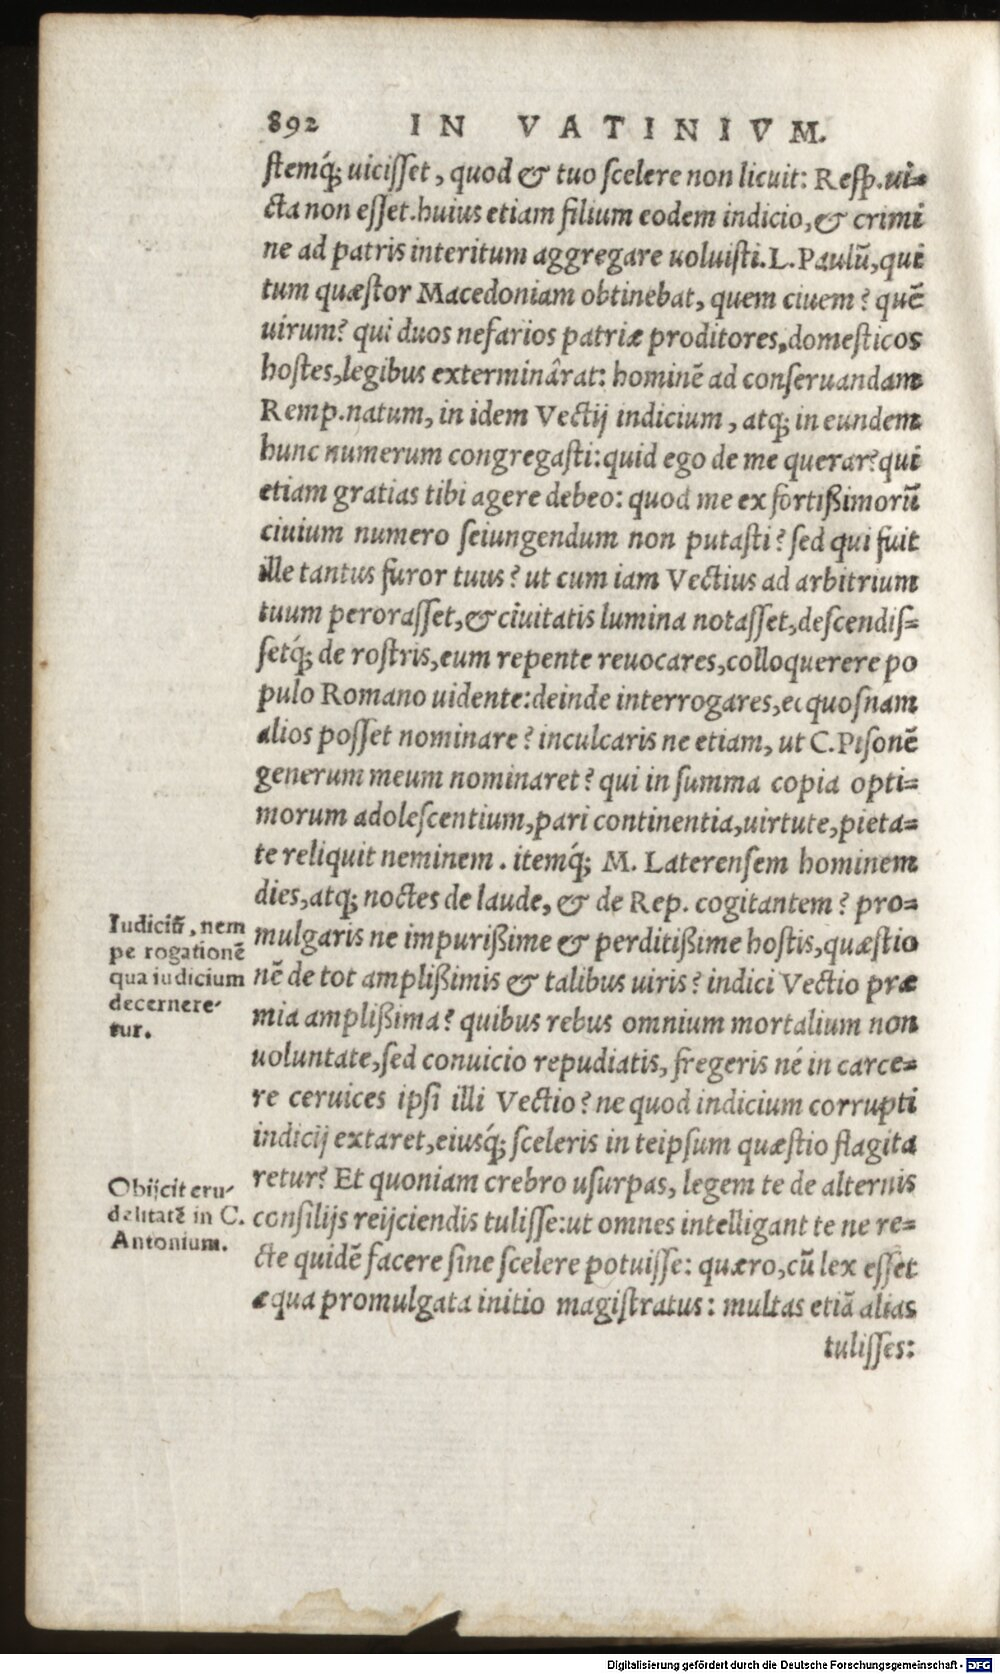 892 IN VATINIVM.
ſtemq́; uiciſſet, quod & tuo ſcelere non licuit: Reſp. ui=
cta non eſſet. huius etiam filium eodem indicio, & crimi
ne ad patris interitum aggregare uoluiſti. L. Paulū, qui
tum quæſtor Macedoniam obtinebat, quem ciuem? quē
uirum? qui duos nefarios patriæ proditores, domeſticos
hoſtes, legibus exterminârat: hominē ad conſeruandam
Remp. natum, in idem Vectij indicium, atq; in eundem
hunc numerum congregaſti: quid ego de me querar? qui
etiam gratias tibi agere debeo: quod me ex fortißimorū
ciuium numero ſeiungendum non putaſti? ſed qui fuit
ille tantus furor tuus? ut cum iam Vectius ad arbitrium
tuum peroraſſet, & ciuitatis lumina notaſſet, deſcendiſ=
ſetq́; de roſtris, eum repente reuocares, colloquerere po
pulo Romano uidente: deinde interrogares, ecquoſnam
alios poſſet nominare? inculcaris ne etiam, ut C. Piſonē
generum meum nominaret? qui in ſumma copia opti=
morum adoleſcentium, pari continentia, uirtute, pieta=
te reliquit neminem. itemq́; M. Laterenſem hominem
dies, atq; noctes de laude, & de Rep. cogitantem? pro=
mulgaris ne impurißime & perditißime hoſtis, quæſtio
nē de tot amplißimis & talibus uiris? indici Vectio præ
mia amplißima? quibus rebus omnium mortalium non
uoluntate, ſed conuicio repudiatis, fregeris né in carce=
re ceruices ipſi illi Vectio? ne quod indicium corrupti
indicij extaret, eiusq́; ſceleris in teipſum quæſtio flagita
retur? Et quoniam crebro uſurpas, legem te de alternis
conſilijs reijciendis tuliſſe: ut omnes intelligant te ne re=
cte quidē facere ſine ſcelere potuiſſe: quæro, cū lex eſſet
æqua promulgata initio magiſtratus: multas etiā alias
tuliſſes:
Iudiciū, nem
pe rogationē
qua iudicium
decernere-
tur.
Obijcit cru-
delitatē in C.
Antonium.
Digitalisierung gefördert durch die Deutsche Forschungsgemeinschaft - DFG